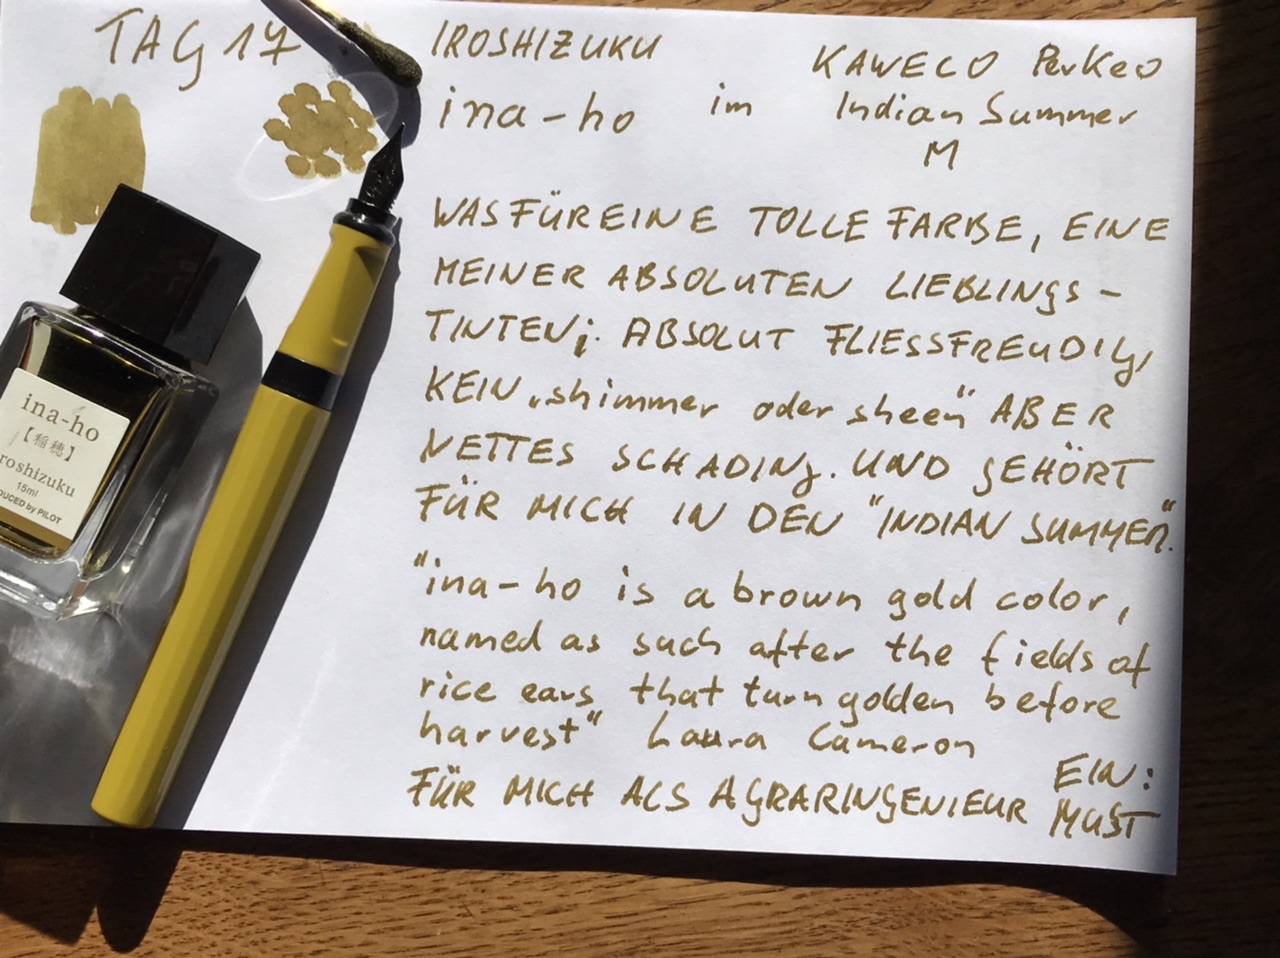 TAG 17
IROSHIZUKU
ina-ho
im
KAWECO PerKeo
Indian Summer
M
WAS FÜR EINE TOLLE FARBE, EINE
MEINER ABSOLUTEN LIEBLINGS-
TINTEN; ABSOLUT FLIESSFREUDIG,
KEIN „shimmer oder sheen“ ABER
NETTES SCHADING. UND GEHÖRT
FÜR MICH IN DEN "INDIAN SUMMER".
"ina-ho is a brown gold color,
named as such after the fields of
rice ears that turn golden before
harvest" Laura Cameron
FÜR MICH ALS AGRARINGENIEUR EIN:
MUST
ina-ho
【稲穂】
roshizuku
15ml
DUCED by PILOT